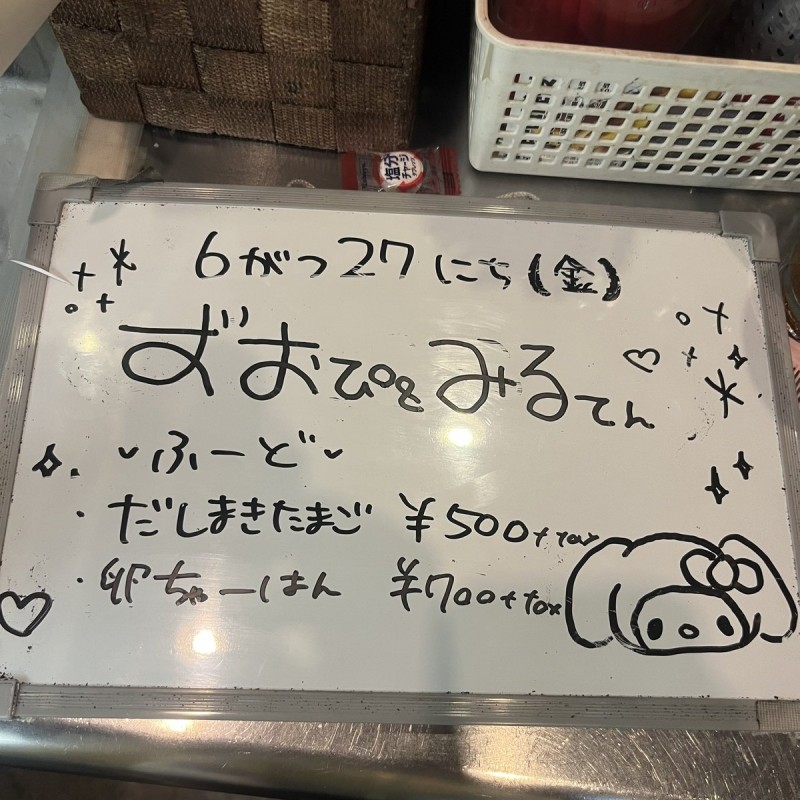 塩分
チャージ
6がつ27にち(金)
ずおぴとみるてん
ふーど
・だしまきたまご ¥500+tax
・卵ちゃーはん ¥700+tax